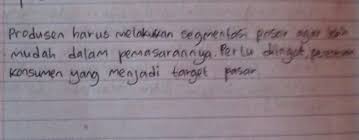 Produsen harus melakukan segmentasi pasar agar lebih
mudah dalam pemasarannya. Perlu diingat,
konsumen yang menjadi target pasar